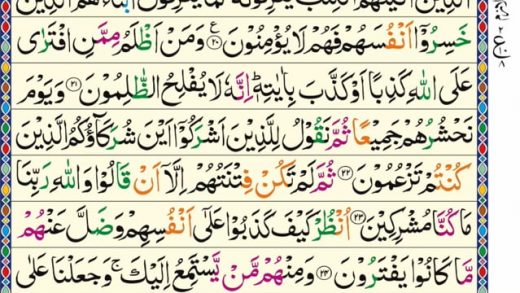 الَّذِيْنَ اٰتَيْنٰهُمُ الْكِتٰبَ يَعْرِفُوْنَهٗ كَمَا يَعْرِفُوْنَ اَبْنَآءَهُمْ اَلَّذِيْنَ
خَسِرُوْۤا اَنْفُسَهُمْ فَهُمْ لَا يُؤْمِنُوْنَ ۧ‏﴿۲۰﴾ وَمَنْ اَظْلَمُ مِمَّنِ افْتَرٰى
عَلَى اللّٰهِ كَذِبًا اَوْ كَذَّبَ بِاٰيٰتِهٖؕ اِنَّهٗ لَا يُفْلِحُ الظّٰلِمُوْنَ ﴿۲۱﴾ وَيَوْمَ
نَحْشُرُهُمْ جَمِيْعًا ثُمَّ نَقُوْلُ لِلَّذِيْنَ اَشْرَكُوْۤا اَيْنَ شُرَكَآؤُكُمُ الَّذِيْنَ
كُنْتُمْ تَزْعُمُوْنَ ﴿۲۲﴾ ثُمَّ لَمْ تَكُنْ فِتْنَتُهُمْ اِلَّاۤ اَنْ قَالُوْا وَاللّٰهِ رَبِّنَا
مَا كُنَّا مُشْرِكِيْنَ ﴿۲۳﴾ اُنْظُرْ كَيْفَ كَذَبُوْا عَلٰٓى اَنْفُسِهِمْ وَضَلَّ عَنْهُمْ
مَّا كَانُوْا يَفْتَرُوْنَ ﴿۲۴﴾ وَمِنْهُمْ مَّنْ يَّسْتَمِعُ اِلَيْكَۚ وَجَعَلْنَا عَلٰى